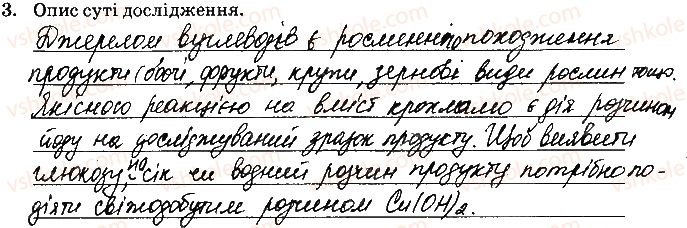 3. Опис суті дослідження.
Джерелом вуглеводів є рослинного походження
продукти (овочі, фрукти, крупи, зернові види рослин тощо.
Якісною реакцією на вміст крохмалю є дія розчином
йоду на досліджуваний зразок продукту. Щоб виявити
глюкозу, на сік чи водний розчин продукту потрібно по-
діяти свіжодобутим розчином Cu(OH)₂.